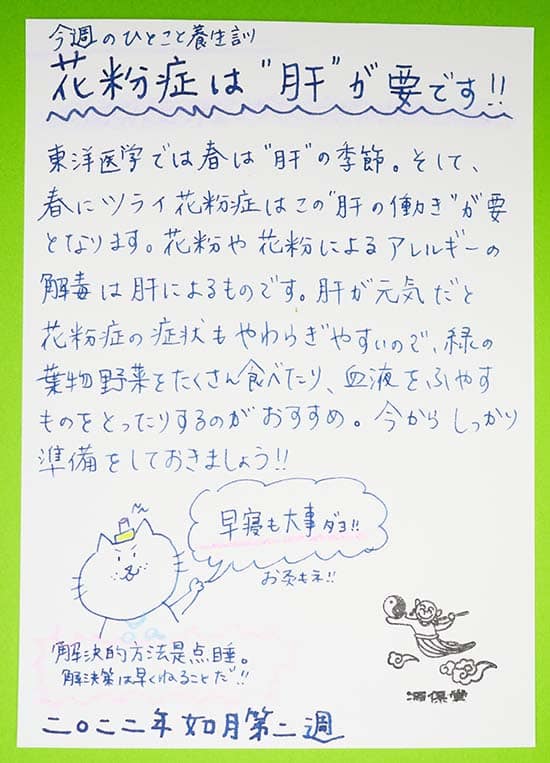 今週のひとこと養生訓
花粉症は"肝"が要です!!
東洋医学では春は"肝"の季節。そして、
春にツライ花粉症はこの"肝の働き"が要
となります。花粉や花粉によるアレルギーの
解毒は肝によるものです。肝が元気だと
花粉症の症状もやわらぎやすいので、緑の
葉物野菜をたくさん食べたり、血液をふやす
ものをとったりするのがおすすめ。今からしっかり
準備をしておきましょう!!
早寝も大事ダヨ!!
お灸もネ!!
解決的方法是点睡。
解決策は早くねることだ!!
源保堂
二〇二二年如月第二週